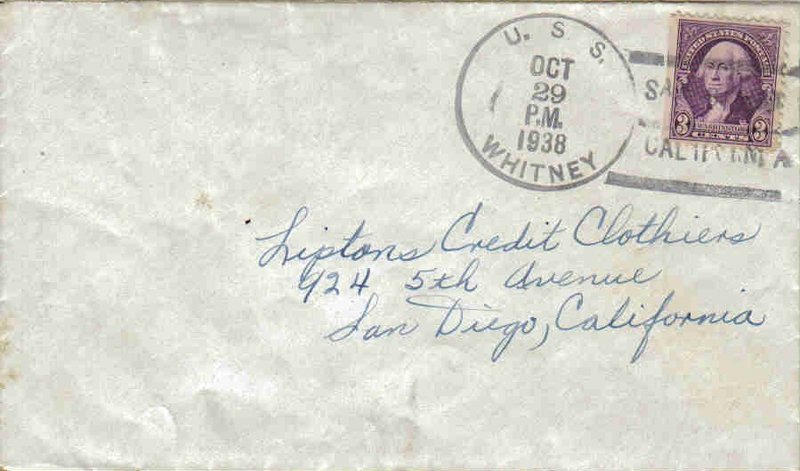 U. S. S.
OCT
29
P.M.
1938
WHITNEY
UNITED STATES POSTAGE
3 WASHINGTON 3
CENTS
CALIFORNIA
Liptons Credit Clothiers
924 5th Avenue
San Diego, California